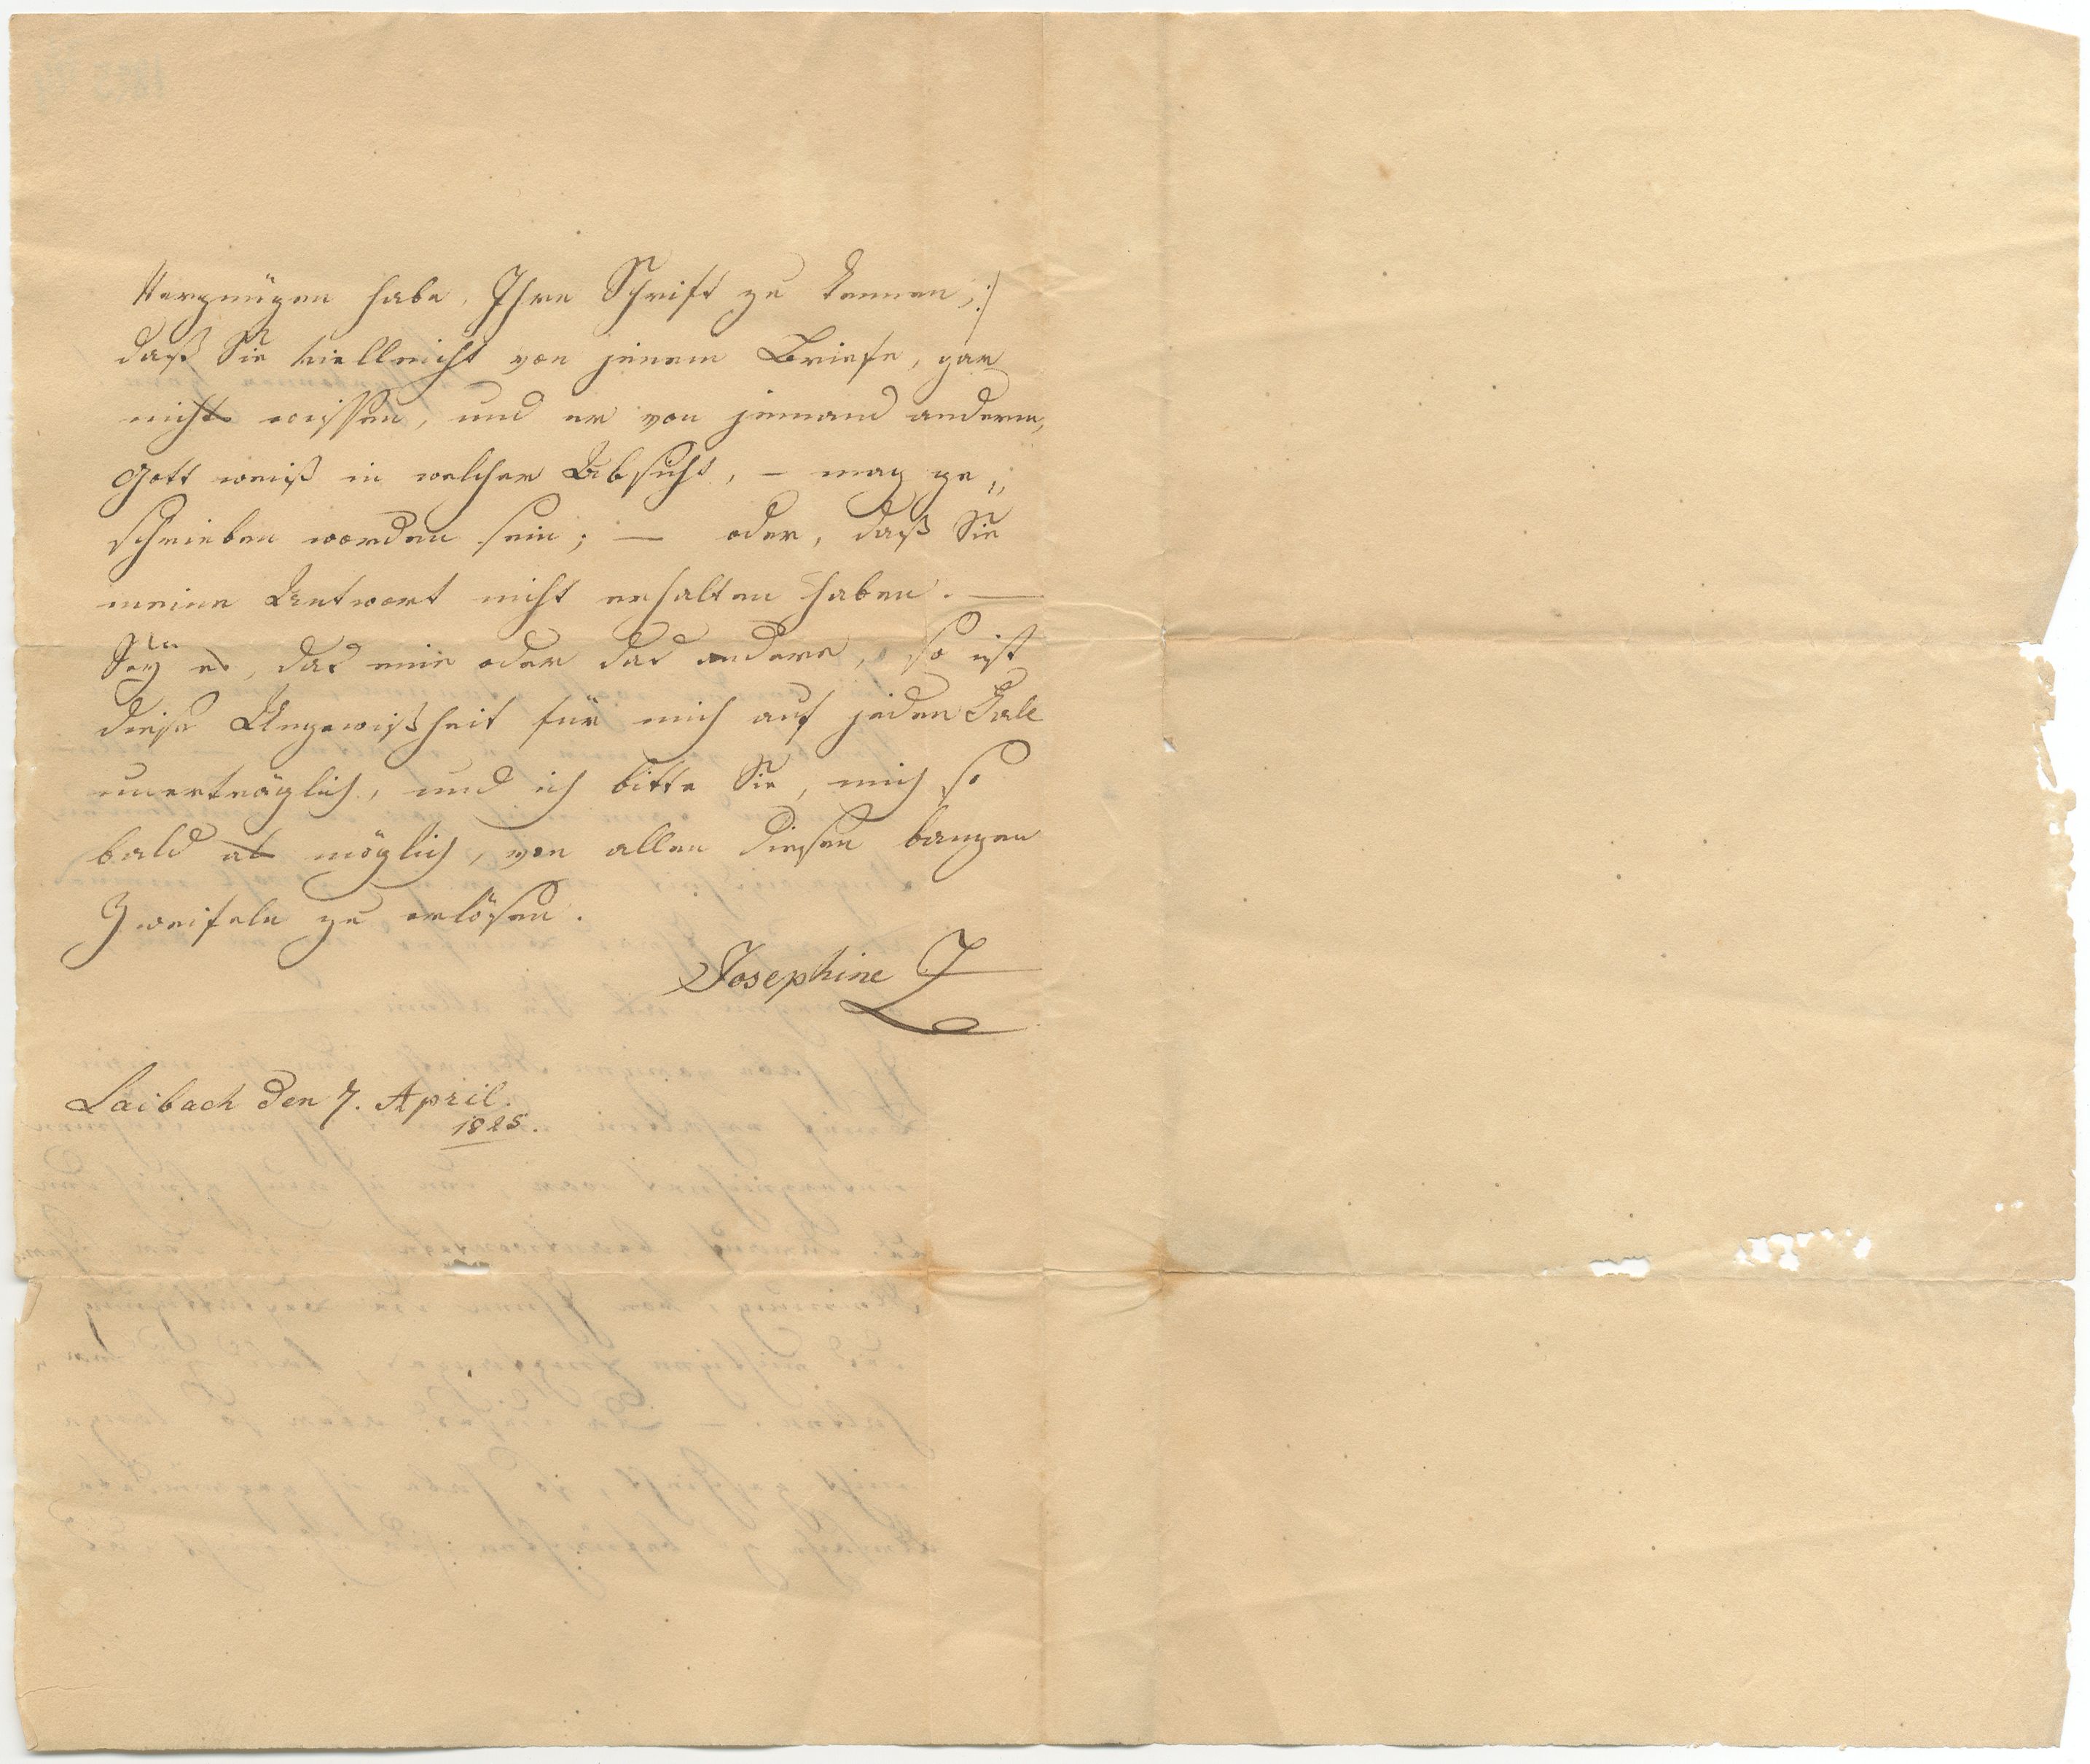 Vergnügen habe, Ihre Schrift zu kennen,:/
daß Sie vielleicht von jenem Briefe, gar
nicht wissen, und er von jemand anderm,
Gott weiß in welcher Absicht, – mag ge„
schrieben worden sein; — oder, daß Sie
meine Antwort nicht erhalten haben. —
Sey es, das eine oder das andere, so ist
diese Ungewißheit für mich auf jeden Fall
unerträglich, und ich bitte Sie, mich so
bald als möglich, von allen diesen bangen
Zweifeln zu erlösen.
Josephine
Laibach den 7. April.
1825.